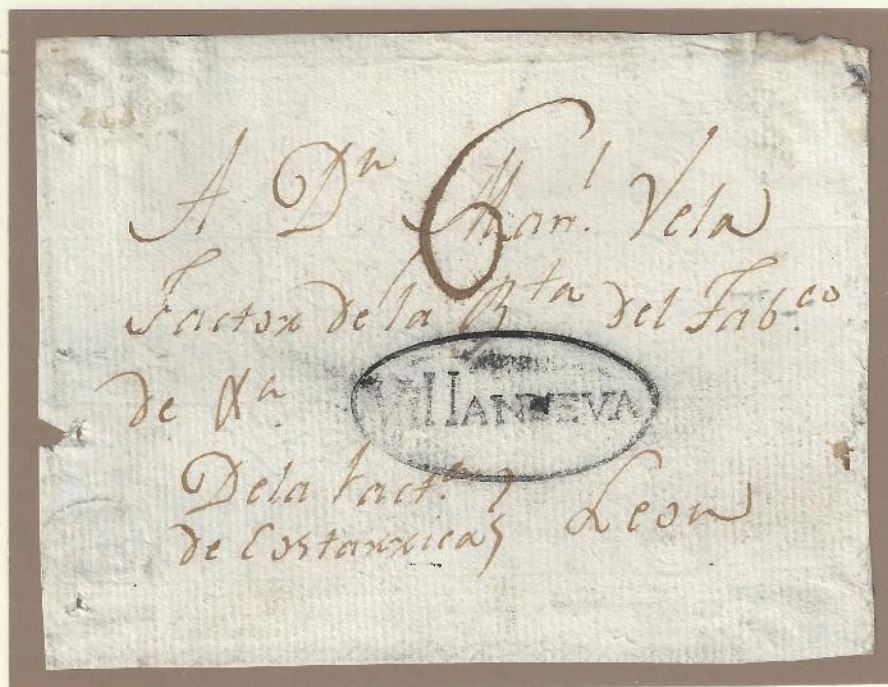 A Dn. Man.l Vela
6
Factor de la Rta del Tab.co
de Xa.
VillANUEVA
De la Fact.a
de Costarrica
Leon